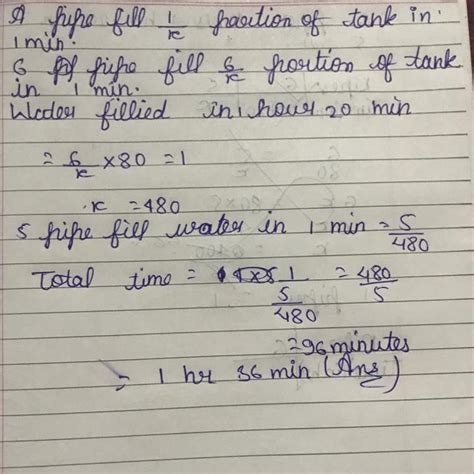 A pipe fill 1/x poartion of tank in
1 min.
6 pipe fill 6/x portion of tank
in 1 min.
Water fillied in 1 hour 20 min
= 6/x × 80 = 1
x = 480
5 pipe fill water in 1 min = 5/480
Total time = 1/(5/480) = 480/5
= 96 minutes
= 1 hr 36 min (Ans)